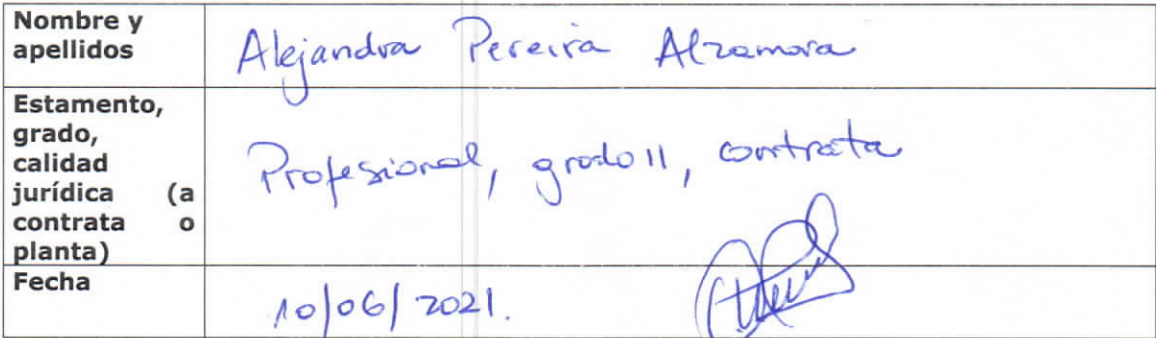 Nombre y
apellidos
Alejandra Pereira Alzamora
Estamento,
grado,
calidad
jurídica (a
contrata o
planta)
Profesional, grado 11, contrata
Fecha
10/06/2021.